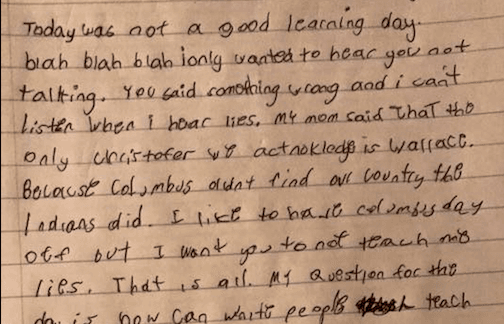 Today was not a good learning day.
blah blah blah i only wanted to hear you not
talking. You said something wrong and i can't
listen when i hear lies. My mom said that the
only christofer we acknokledge is Wallace.
Because Columbus didnt find our country the
Indians did. I like to have columbus day
off but I want you to not teach me
lies. That is all. My question for the
day is how can white people teach